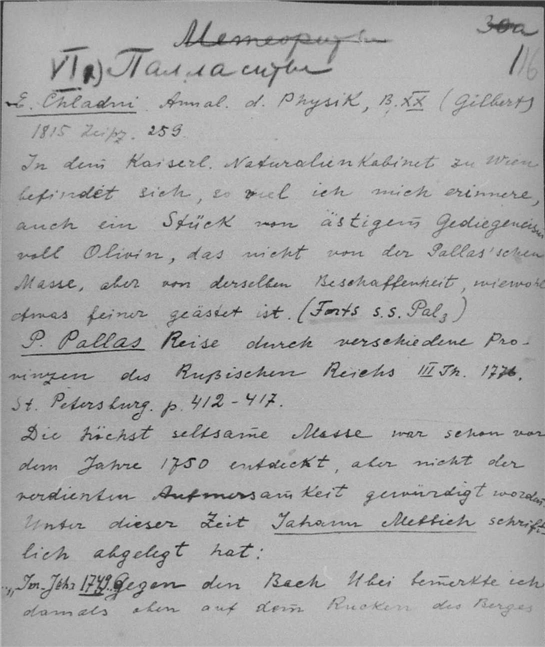 Метеориты
30a
116
VI a) Палласиты
E. Chladni Annal. d. Physik, B. XX (Gilbert)
1815 Leipz. 259
In dem Kaiserl. Naturalienkabinet zu Wien
befindet sich, so viel ich mich erinnere,
auch ein Stück von ästigem Gediegeneisen
voll Olivin, das nicht von der Pallas'schen
Masse, aber von derselben Beschaffenheit, wiewohl
etwas feiner geästet ist. (Forts s. s. Pal3)
P. Pallas Reise durch verschiedene Pro-
vinzen des Rußischen Reichs III Th. 1776.
St. Petersburg. p. 412-417.
Die höchst seltsame Masse war schon vor
dem Jahre 1750 entdeckt, aber nicht der
verdienten Aufmersamkeit gewürdigt worden
Unter dieser Zeit Iahann Mettich schrift-
lich abgelegt hat:
„Im Jahr 1749. Gegen den Bach Ubei bemerkte ich
damals oben auf dem Rucken des Berges